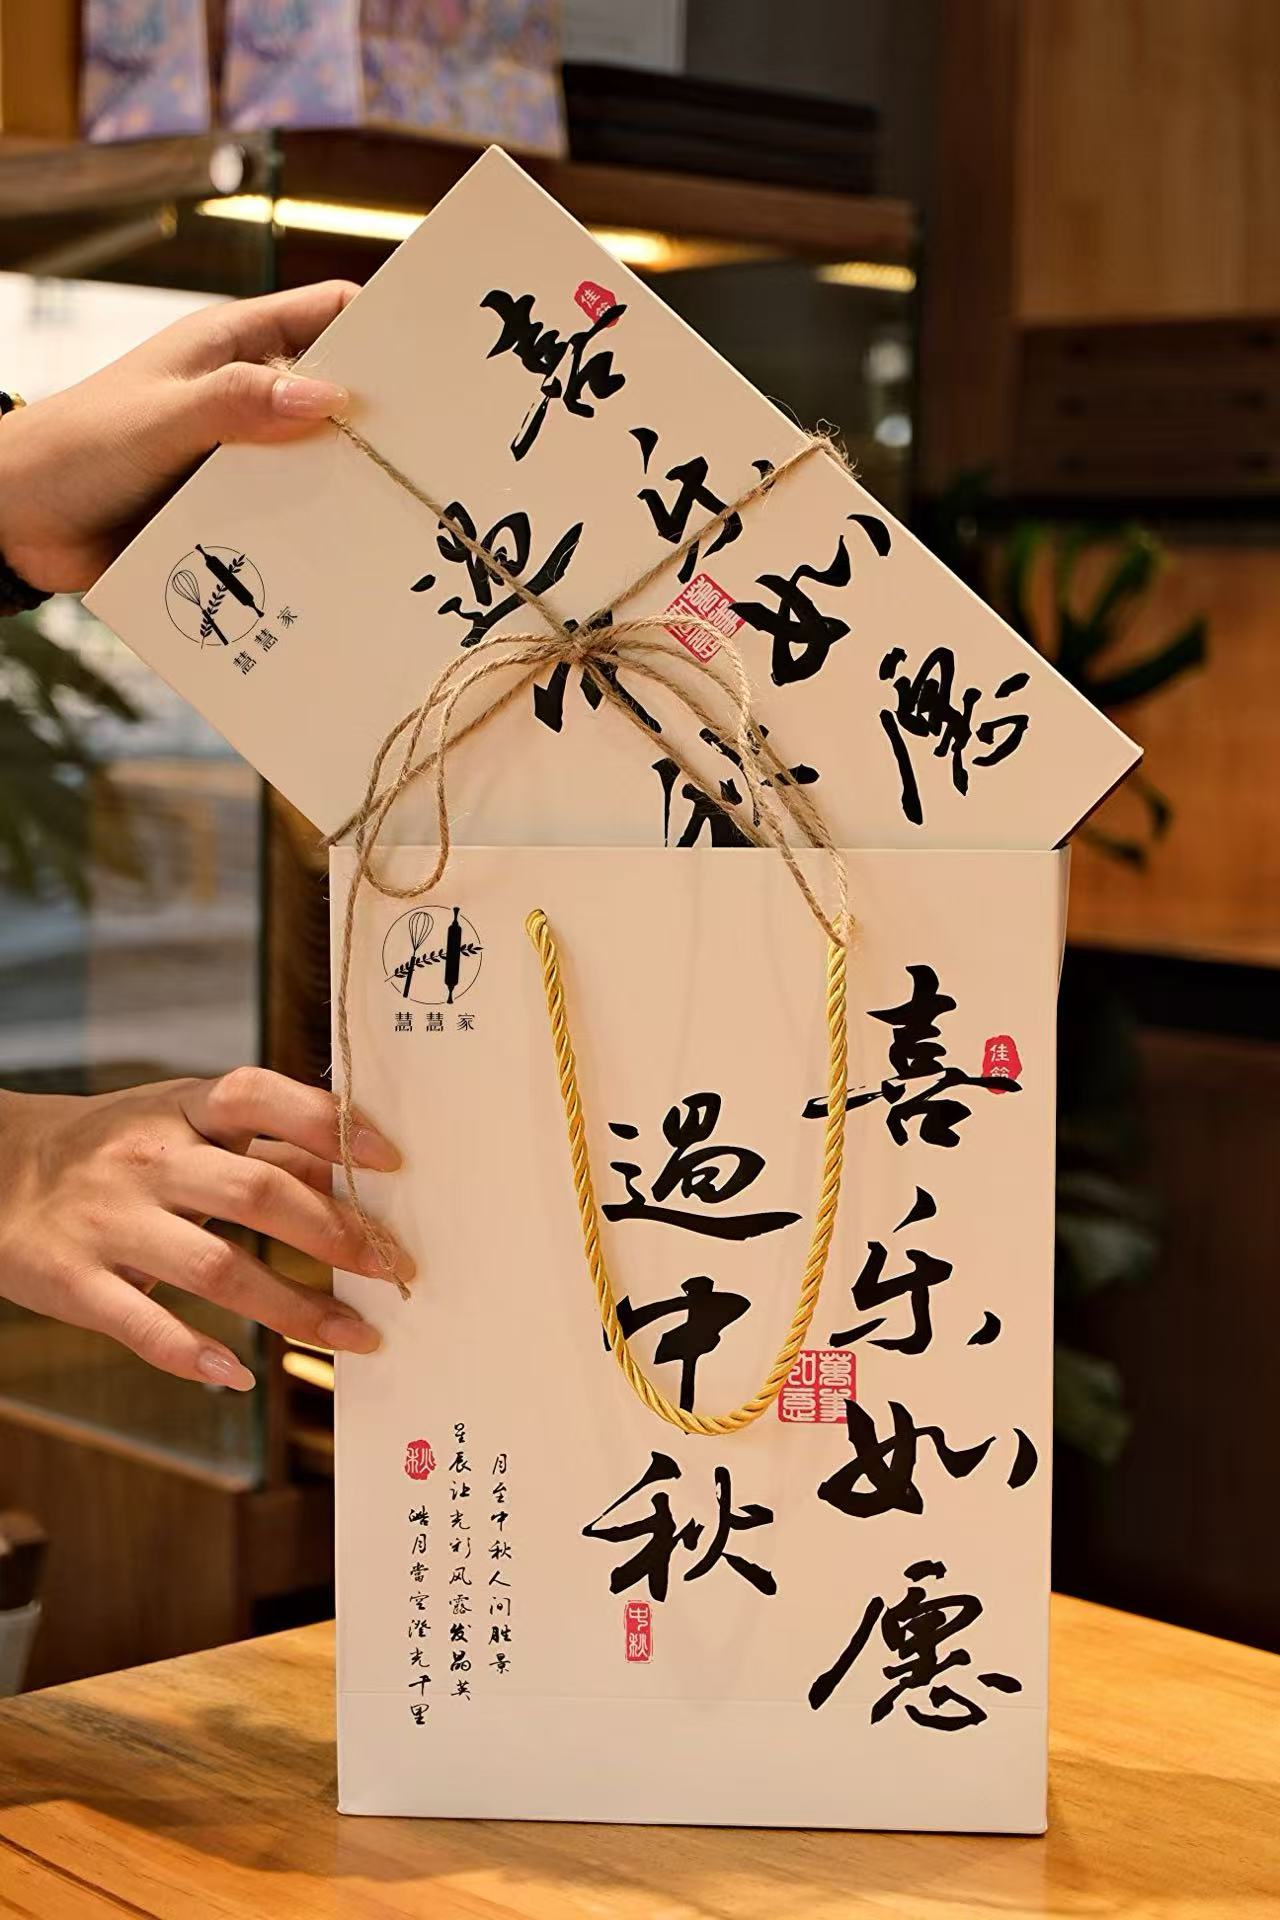 佳節
喜乐如愿
過中秋
萬事如意
慧慧家
慧慧家
喜乐如愿
佳節
過中秋
萬事如意
中秋
月至中秋人间胜景
星辰让光彩风露发晶英
秋
皓月當空澄光千里